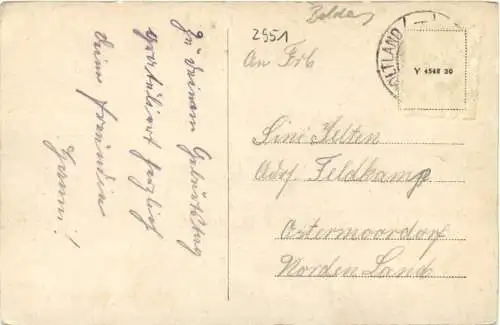 Zu deinem Geburtstag
gratuliert herzlich
deine Freundin
Hanni!
2951
ALTLAND
Y 4548 20
An Frl.
Sini Jelten
Adr. Feldkamp
Ostermoordorf
Norden Land